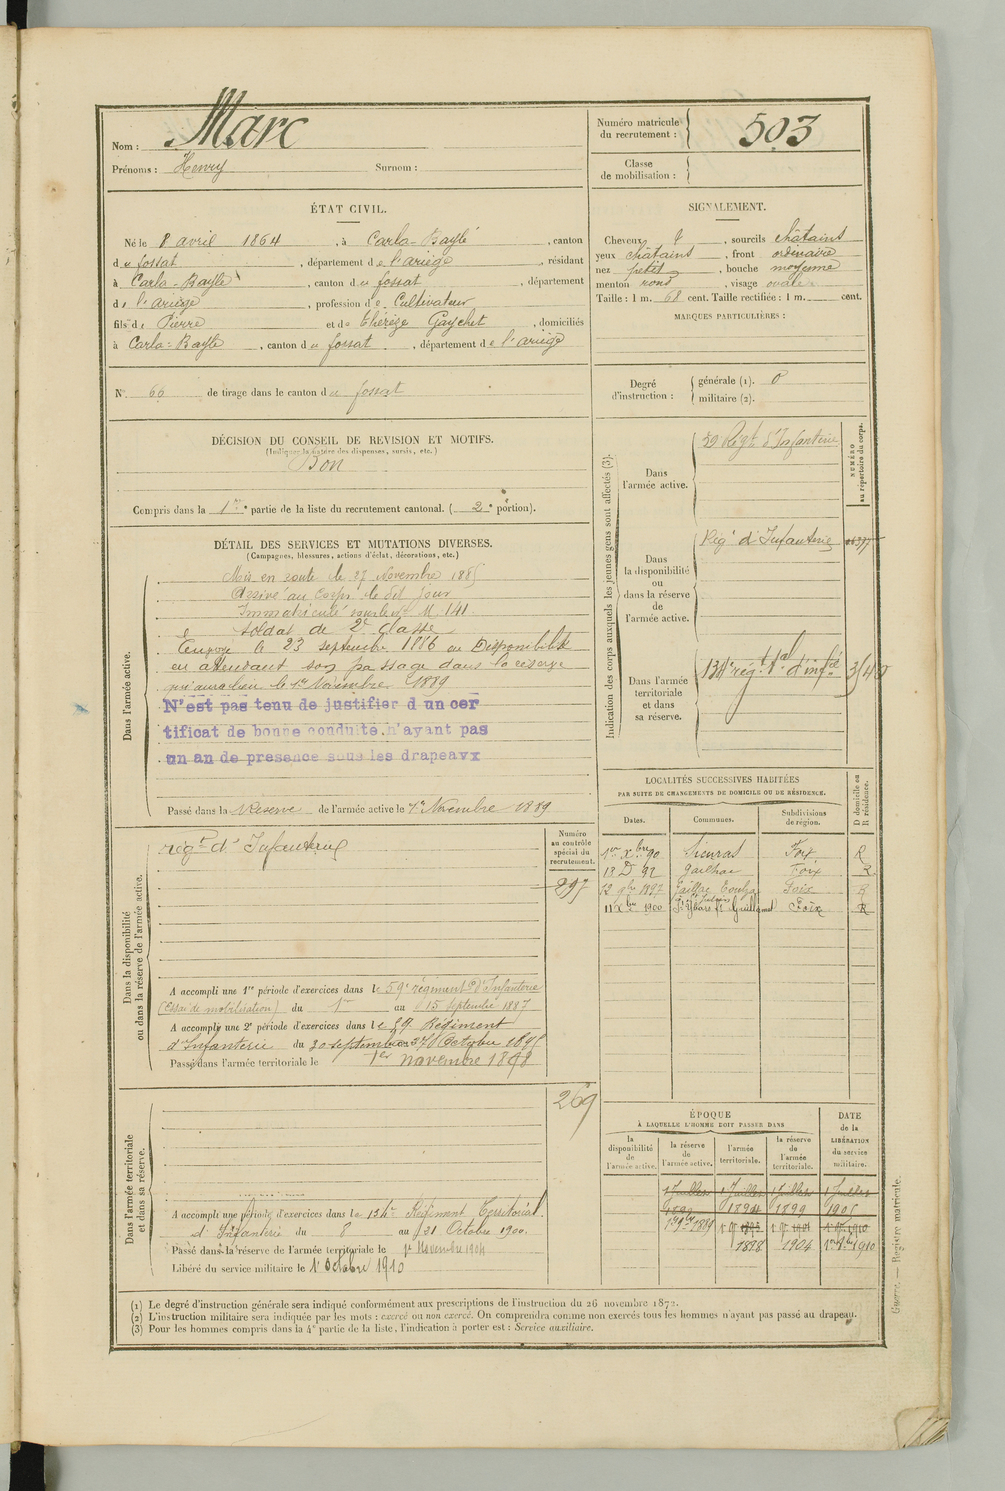 Nom : Marc
Prénoms : Henry Surnom :
Numéro matricule du recrutement : 503
Classe de mobilisation :
ÉTAT CIVIL.
Né le 8 avril 1864, à Carla-Bayle, canton
du fossat, département de l'ariège, résidant
à Carla-Bayle, canton du fossat, département
de l'ariège, profession de Cultivateur
fils de Pierre et de thérèze Gaychet, domiciliés
à Carla-Bayle, canton du fossat, département de l'ariège
N° 66 de tirage dans le canton du fossat
SIGNALEMENT.
Cheveux, sourcils châtains
yeux châtains, front ordinaire
nez petit, bouche moyenne
menton rond, visage ovale
Taille : 1 m. 68 cent. Taille rectifiée : 1 m. cent.
MARQUES PARTICULIÈRES :
Degré d'instruction : générale (1). 0
militaire (2).
DÉCISION DU CONSEIL DE REVISION ET MOTIFS.
(Indiquer la nature des dispenses, sursis, etc.)
Bon
Compris dans la 1re partie de la liste du recrutement cantonal. (2e portion).
DÉTAIL DES SERVICES ET MUTATIONS DIVERSES.
(Campagnes, blessures, actions d'éclat, décorations, etc.)
Dans l'armée active.
Mis en route le 27 Novembre 1885
Arrivé au Corps le dit jour
Immatriculé sous le N° M 141
soldat de 2e classe
Envoyé le 23 septembre 1886 en Disponibilité
en attendant son passage dans la réserve
qui aura lieu le 1er Novembre 1889
N'est pas tenu de justifier d un cer
tificat de bonne conduite.n'ayant pas
un an de presence sous les drapeavx
Passé dans la Réserve de l'armée active le 1er Novembre 1889
Indication des corps auxquels les jeunes gens sont affectés (3).
NUMÉRO au répertoire du corps.
Dans l'armée active.
59 Régt d'Infanterie
Dans la disponibilité ou dans la réserve de l'armée active.
Régt d'Infanterie
Dans l'armée territoriale et dans sa réserve.
134e régt tal d'infie
LOCALITÉS SUCCESSIVES HABITÉES
PAR SUITE DE CHANGEMENTS DE DOMICILE OU DE RÉSIDENCE.
Dates. Communes. Subdivisions de région. D domicile ou R résidence.
1er Xbre 90 Sieuras Foix R
18 D 92 Gailhac Foix R
12 9bre 1897 Foix R
11 Xbre 1900 Foix R
Dans la disponibilité ou dans la réserve de l'armée active.
régt d'Infanterie
Numéro au contrôle spécial du recrutement.
297
A accompli une 1re période d'exercices dans le 59e régiment d'Infanterie
(Essai de mobilisation) du 1er au 15 septembre 1887
A accompli une 2e période d'exercices dans le 59 Régiment
d'Infanterie du 30 septembre au 27 Octobre 1895
Passé dans l'armée territoriale le 1er novembre 1898
Dans l'armée territoriale et dans sa réserve.
269
A accompli une période d'exercices dans le 134e Régiment Territorial
d'Infanterie du 8 au 21 Octobre 1900.
Passé dans la réserve de l'armée territoriale le 1er Novembre 1904
Libéré du service militaire le 1er Octobre 1910
ÉPOQUE
À LAQUELLE L'HOMME DOIT PASSER DANS
la disponibilité de l'armée active. la réserve de l'armée active. l'armée territoriale. la réserve de l'armée territoriale. DATE de la LIBÉRATION du service militaire.
1 Juillet 1 Juillet 1 Juillet 1 Juillet
1899 1905
1898 1904 1910
(1) Le degré d'instruction générale sera indiqué conformément aux prescriptions de l'instruction du 26 novembre 1872.
(2) L'instruction militaire sera indiquée par les mots : exercé ou non exercé. On comprendra comme non exercés tous les hommes n'ayant pas passé au drapeau.
(3) Pour les hommes compris dans la 4e partie de la liste, l'indication à porter est : Service auxiliaire.
Guerre. — Registre matricule.